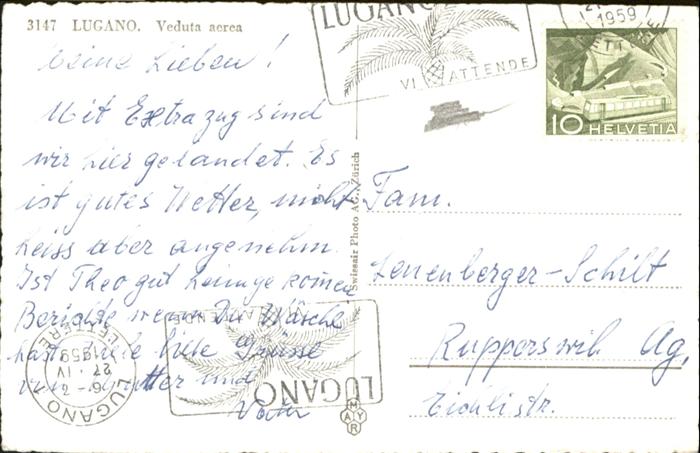 3147 LUGANO. Veduta aerea
Meine Lieben!
Mit Extrazug sind
wir hier gelandet. Es
ist gutes Wetter, nicht
heiss aber angenehm.
Ist Theo gut heimgekommen
Berichte wenn Du Wäsche
hast viele liebe Grüsse
von Mutter und
Vater
Swissair Photo AG., Zürich
LUGANO
VI ATTENDE
1959
LETTERE
10 HELVETIA
Fam.
Leuenberger-Schilt
Rupperswil Ag,
Eichlistr.
LUGANO
VI ATTENDE
LUGANO 1
27. IV 1959
LETTERE
MAYR